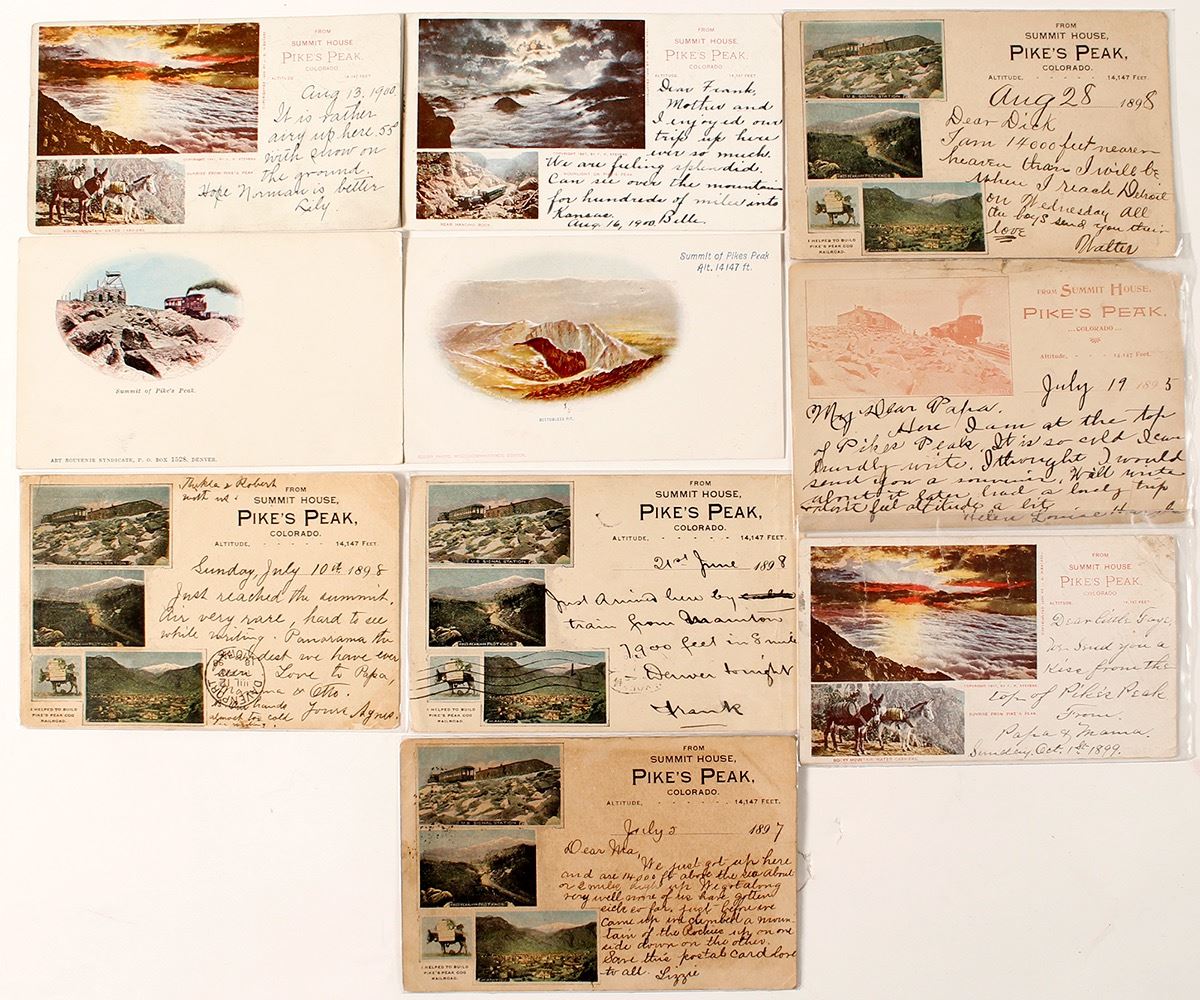 FROM
SUMMIT HOUSE
PIKE'S PEAK
COLORADO
ALTITUDE 14,147 FEET
Aug 13, 1900.
It is rather
airy up here 55°
with snow on
the ground.
Hope Norman is better
Lily.
SUNRISE FROM PIKE'S PEAK
ROCKY MOUNTAIN WATER CARRIERS
FROM
SUMMIT HOUSE
PIKE'S PEAK
COLORADO
ALTITUDE 14,147 FEET
Dear Frank,
Mother and
I enjoyed our
trip up here
ever so much.
COPYRIGHT 1897, BY J. G. STEVENS
MOONLIGHT ON PIKE'S PEAK
We are feeling splendid.
Can see over the mountain
for hundreds of miles into
Kansas.
Aug. 16, 1900. Belle
NEAR HANGING ROCK
FROM
SUMMIT HOUSE,
PIKE'S PEAK,
COLORADO.
ALTITUDE, 14,147 FEET.
Aug 28 1898
U.S. SIGNAL STATION
Dear Dick
I am 14000 feet nearer
heaven than I will be
when I reach Detroit
on Wednesday All
the boys send you their
love
Walter
I HELPED TO BUILD
PIKE'S PEAK COG
RAILROAD.
Summit of Pike's Peak.
ART SOUVENIR SYNDICATE, P. O. BOX 1528, DENVER.
Summit of Pikes Peak
Alt. 14147 ft.
BOTTOMLESS PIT.
FROM SUMMIT HOUSE,
PIKE'S PEAK,
...COLORADO...
Altitude, 14,147 Feet.
July 19 1895
My Dear Papa.
Here I am at the top
of Pikes Peak. It is so cold I can
hardly write. I thought I would
send you a souvenir. Will write
about it later, had a lovely trip
don't feel altitude a bit
Helen Louise
Thekla & Robert
with us.
FROM
SUMMIT HOUSE,
PIKE'S PEAK,
COLORADO.
ALTITUDE, 14,147 FEET.
U.S. SIGNAL STATION
Sunday July 10th 1898
Just reached the summit.
Air very rare, hard to see
while writing. Panorama the
grandest we have ever
seen Love to Papa,
Mamma & Otto.
hands
almost too cold Yours Agnes.
I HELPED TO BUILD
PIKE'S PEAK COG
RAILROAD.
FROM
SUMMIT HOUSE,
PIKE'S PEAK,
COLORADO.
ALTITUDE, 14,147 FEET.
U.S. SIGNAL STATION
21st June 1898
Just arrived here by
train from Manitou
7,900 feet in 8 mile
Denver tonight
Frank
MANITOU
I HELPED TO BUILD
PIKE'S PEAK COG
RAILROAD.
FROM
SUMMIT HOUSE
PIKE'S PEAK
COLORADO
ALTITUDE 14,147 FEET
Dear little Faye,
We send you a
kiss from the
top of Pike's Peak
From
Papa & Mama.
Sunday, Oct. 1st 1899.
SUNRISE FROM PIKE'S PEAK
ROCKY MOUNTAIN WATER CARRIERS
FROM
SUMMIT HOUSE,
PIKE'S PEAK,
COLORADO.
ALTITUDE, 14,147 FEET.
U.S. SIGNAL STATION
July 5 1897
Dear Ma,
We just got up here
and are 14000 ft above the sea about
or 2 miles high up We got along
very well none of us have gotten
sick so far, just before we
came up we climbed a moun-
tain of the Rockies up on one
side down on the other.
Save this postal card love
to all. Lizzie
MANITOU
I HELPED TO BUILD
PIKE'S PEAK COG
RAILROAD.